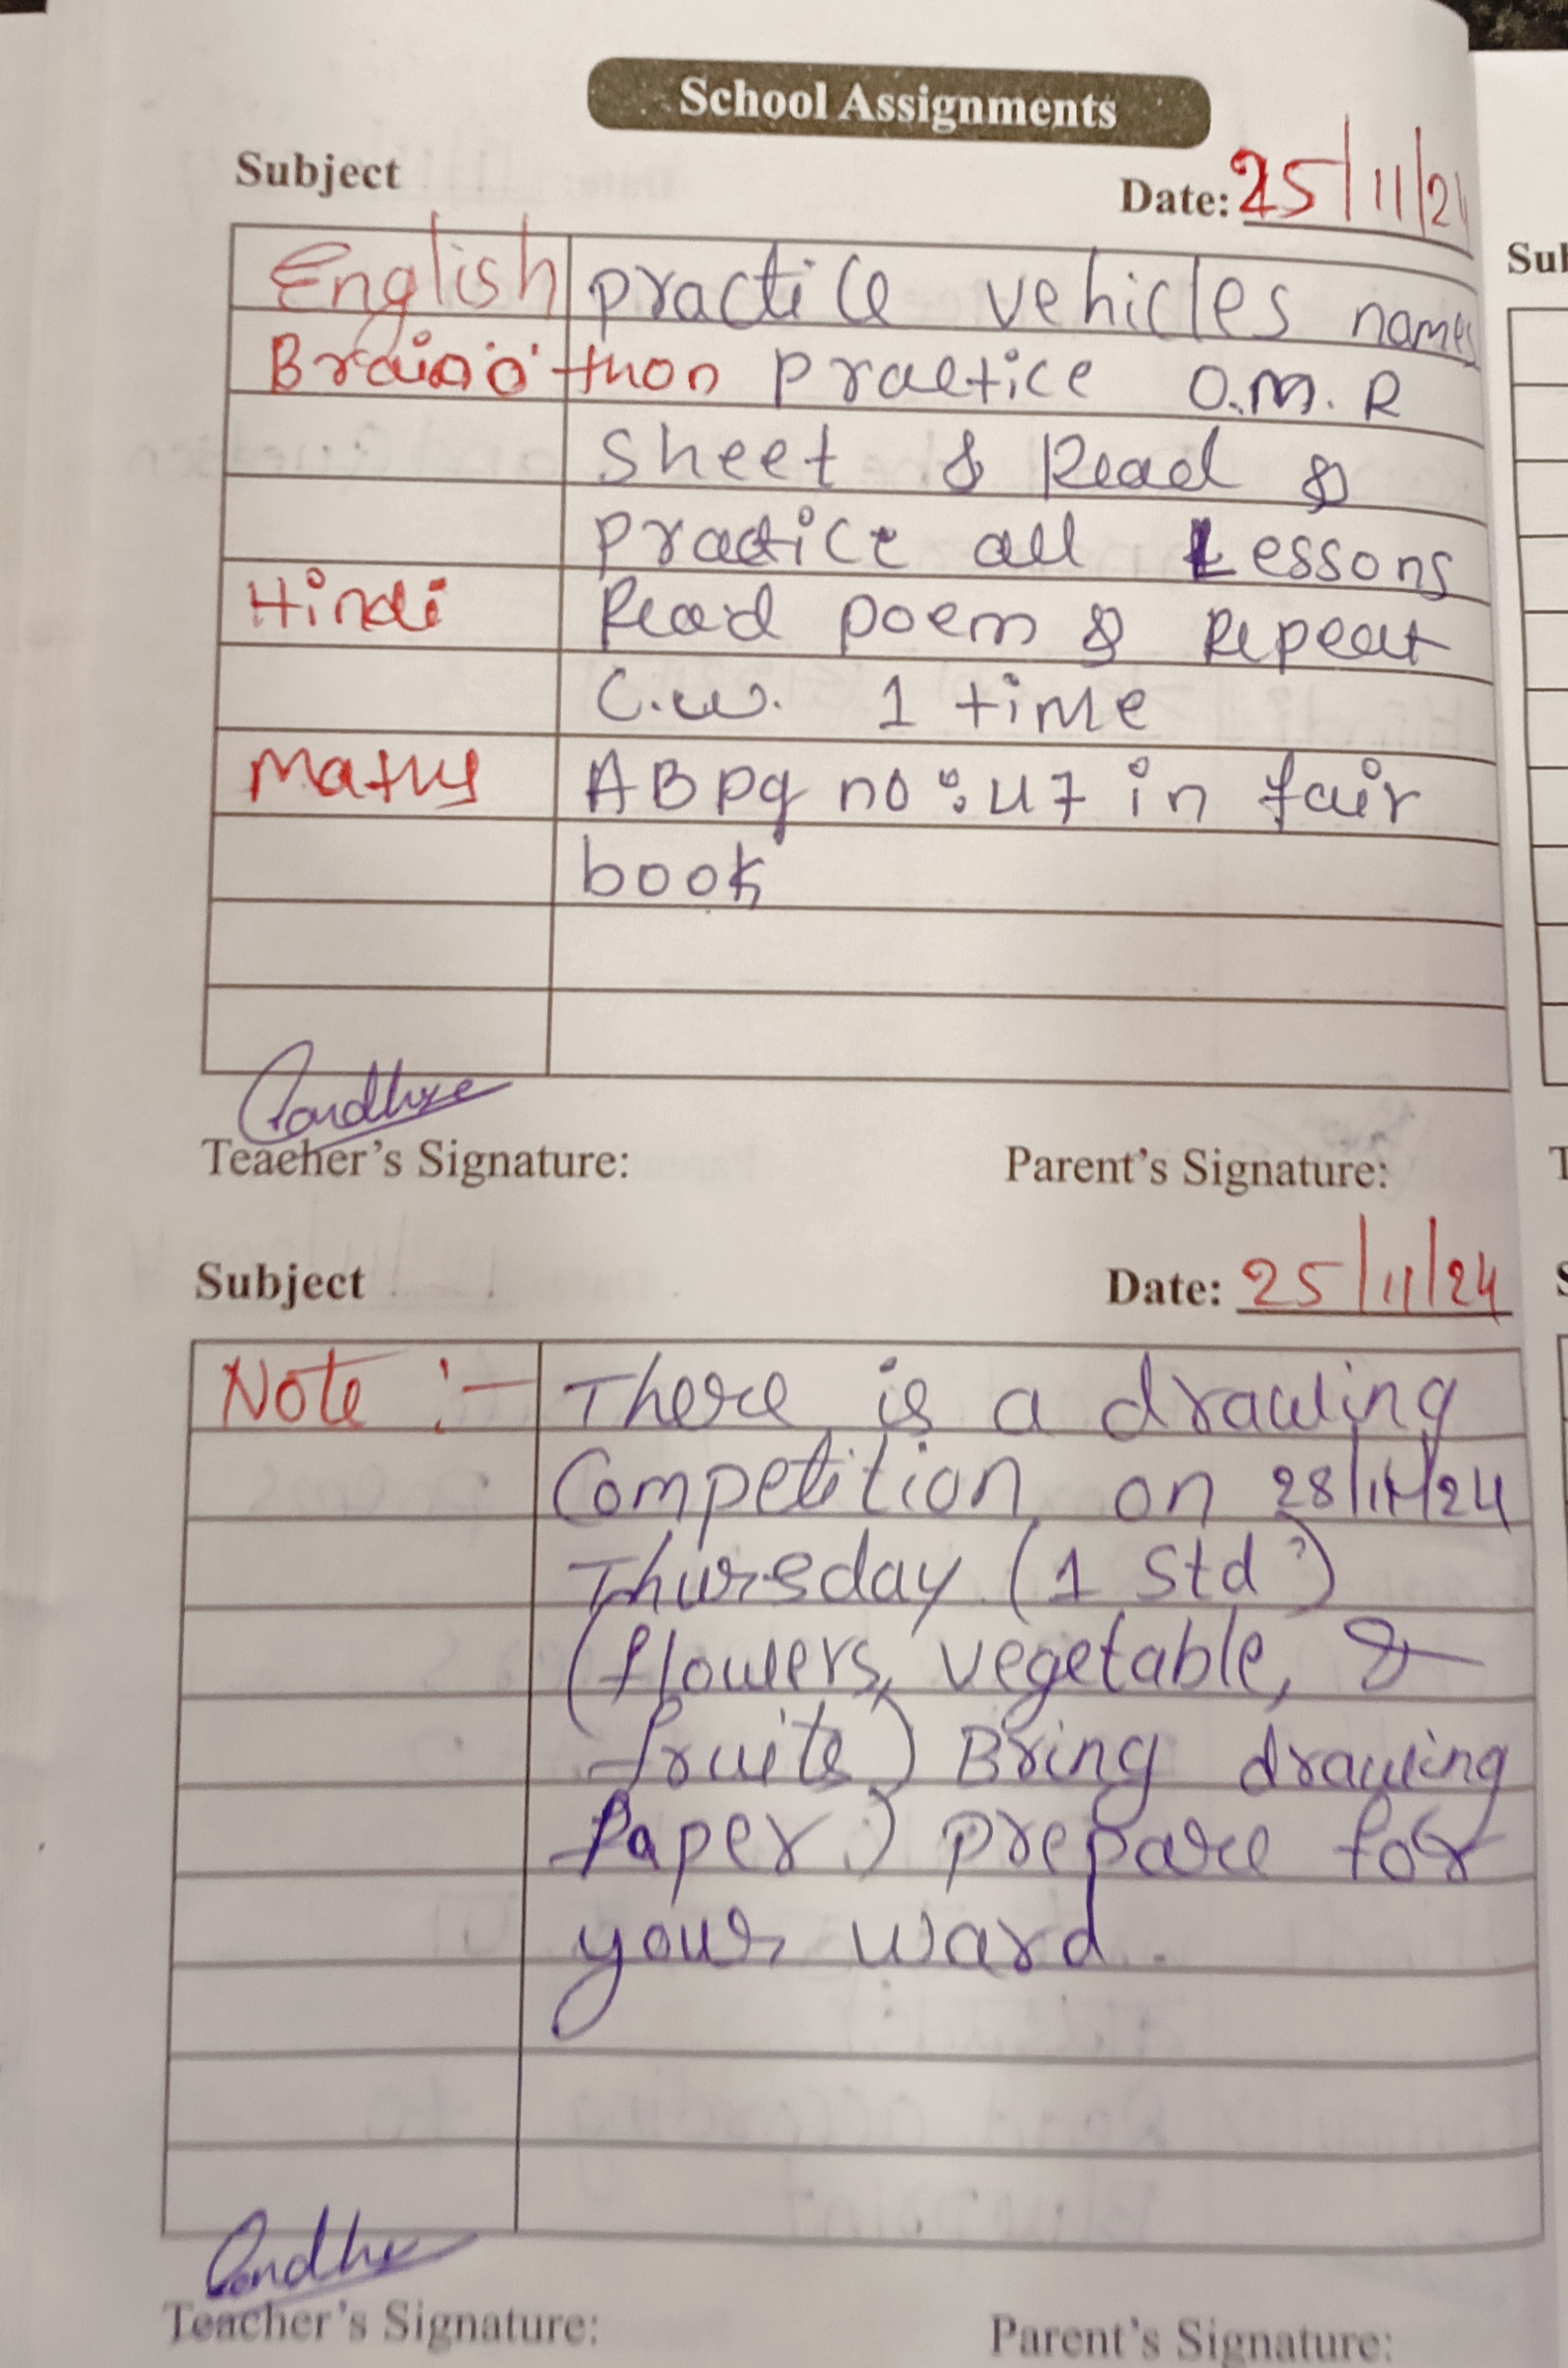 School Assignments
Subject Date: 25/11/24
English practice vehicles names
Brain o' thon practice O.M.R
Sheet & Read &
practice all Lessons
Hindi Read poem & Repeat
C.w. 1 time
Maths AB pg no: 47 in fair
book
Teacher's Signature: Parent's Signature:
Subject Date: 25/11/24
Note :- There is a drawing
Competition on 28/11/24
Thursday (1 Std)
(flowers, vegetable, &
fruits) Bring drawing
Paper) prepare for
your ward.
Teacher's Signature: Parent's Signature: